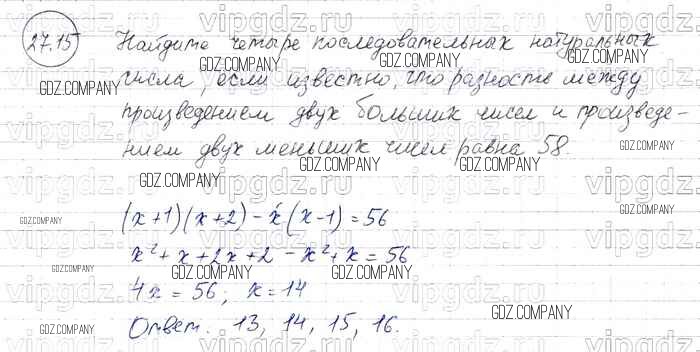 27.15 Найдите четыре последовательных натуральных
числа, если известно, что разность между
произведением двух больших чисел и произведе-
нием двух меньших чисел равна 58.
(x+1)(x+2)-x(x-1)=56
x²+x+2x+2-x²+x=56
4x=56; x=14
Ответ. 13, 14, 15, 16.
vipgdz.ru
GDZ.COMPANY